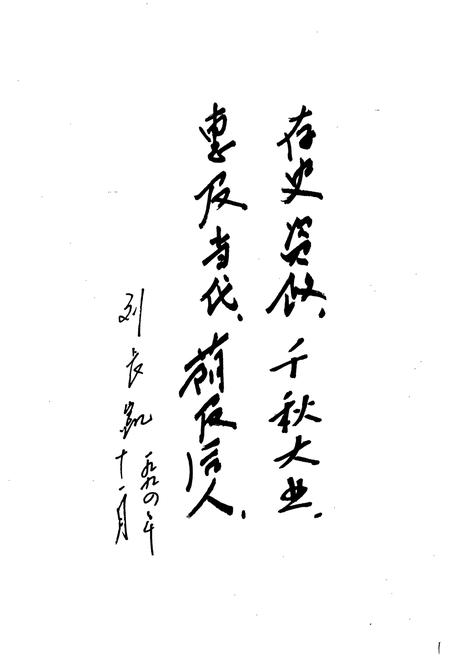 存史资政，千秋大业.
惠及当代，荫及后人.
刘长凯 一九九四年
十一月
1